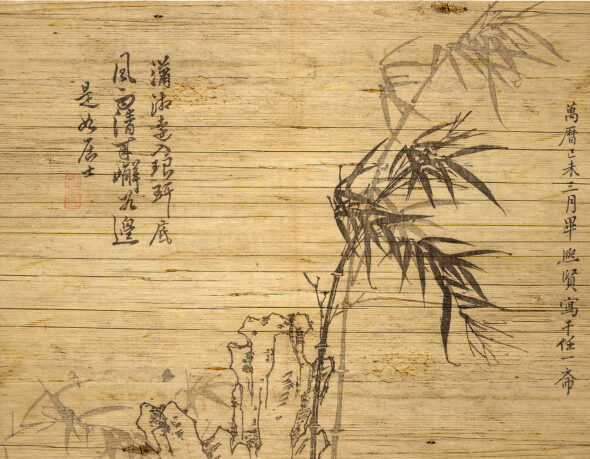 萬曆己未三月畢熙賢寫于任一齋
瀟湘遠入琅玕底
風雨清來嶰谷邊
是如居士